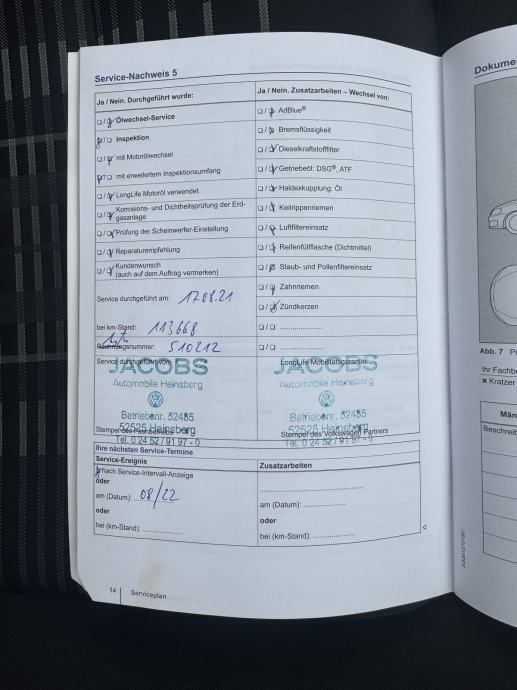 Service-Nachweis 5
Dokume
Ja / Nein. Durchgeführt wurde:
Ja / Nein. Zusatzarbeiten – Wechsel von:
❏ / ❏ Ölwechsel-Service
❏ / ❏ AdBlue®
❏ / ❏ Inspektion
❏ / ❏ Bremsflüssigkeit
❏ / ❏ mit Motorölwechsel
❏ / ❏ Dieselkraftstofffilter
❏ / ❏ mit erweitertem Inspektionsumfang
❏ / ❏ Getriebeöl: DSG®, ATF
❏ / ❏ LongLife Motoröl verwendet
❏ / ❏ Haldexkupplung: Öl
❏ / ❏ Korrosions- und Dichtheitsprüfung der Erd-
gasanlage
❏ / ❏ Keilrippenriemen
❏ / ❏ Prüfung der Scheinwerfer-Einstellung
❏ / ❏ Luftfiltereinsatz
❏ / ❏ Reparaturempfehlung
❏ / ❏ Reifenfüllflasche (Dichtmittel)
❏ / ❏ Kundenwunsch
(auch auf dem Auftrag vermerken)
❏ / ❏ Staub- und Pollenfiltereinsatz
❏ / ❏ Zahnriemen
Service durchgeführt am: 17.08.21
❏ / ❏ Zündkerzen
bei km-Stand: 113668
❏ / ❏ ....................
Rechnungsnummer: 510212
❏ / ❏ ....................
Service durchgeführt von
LongLife Mobilitätsgarantie
JACOBS
Automobile Heinsberg
Betriebsnr. 52485
52525 Heinsberg
Tel. 0 24 52 / 91 97 - 0
Stempel des Fachbetriebs
JACOBS
Automobile Heinsberg
Betriebenr. 52485
52525 Heinsberg
Tel. 0 24 52 / 91 97 - 0
Stempel des Volkswagen Partners
Ihre nächsten Service-Termine
Service-Ereignis
Zusatzarbeiten
nach Service-Intervall-Anzeige
oder
am (Datum): 08/22
am (Datum): ....................
oder
oder
bei (km-Stand): ....................
bei (km-Stand): ....................
14
Serviceplan
Abb. 7 P
Ihr Fachbe
✕ Kratzer
Män
Beschreib